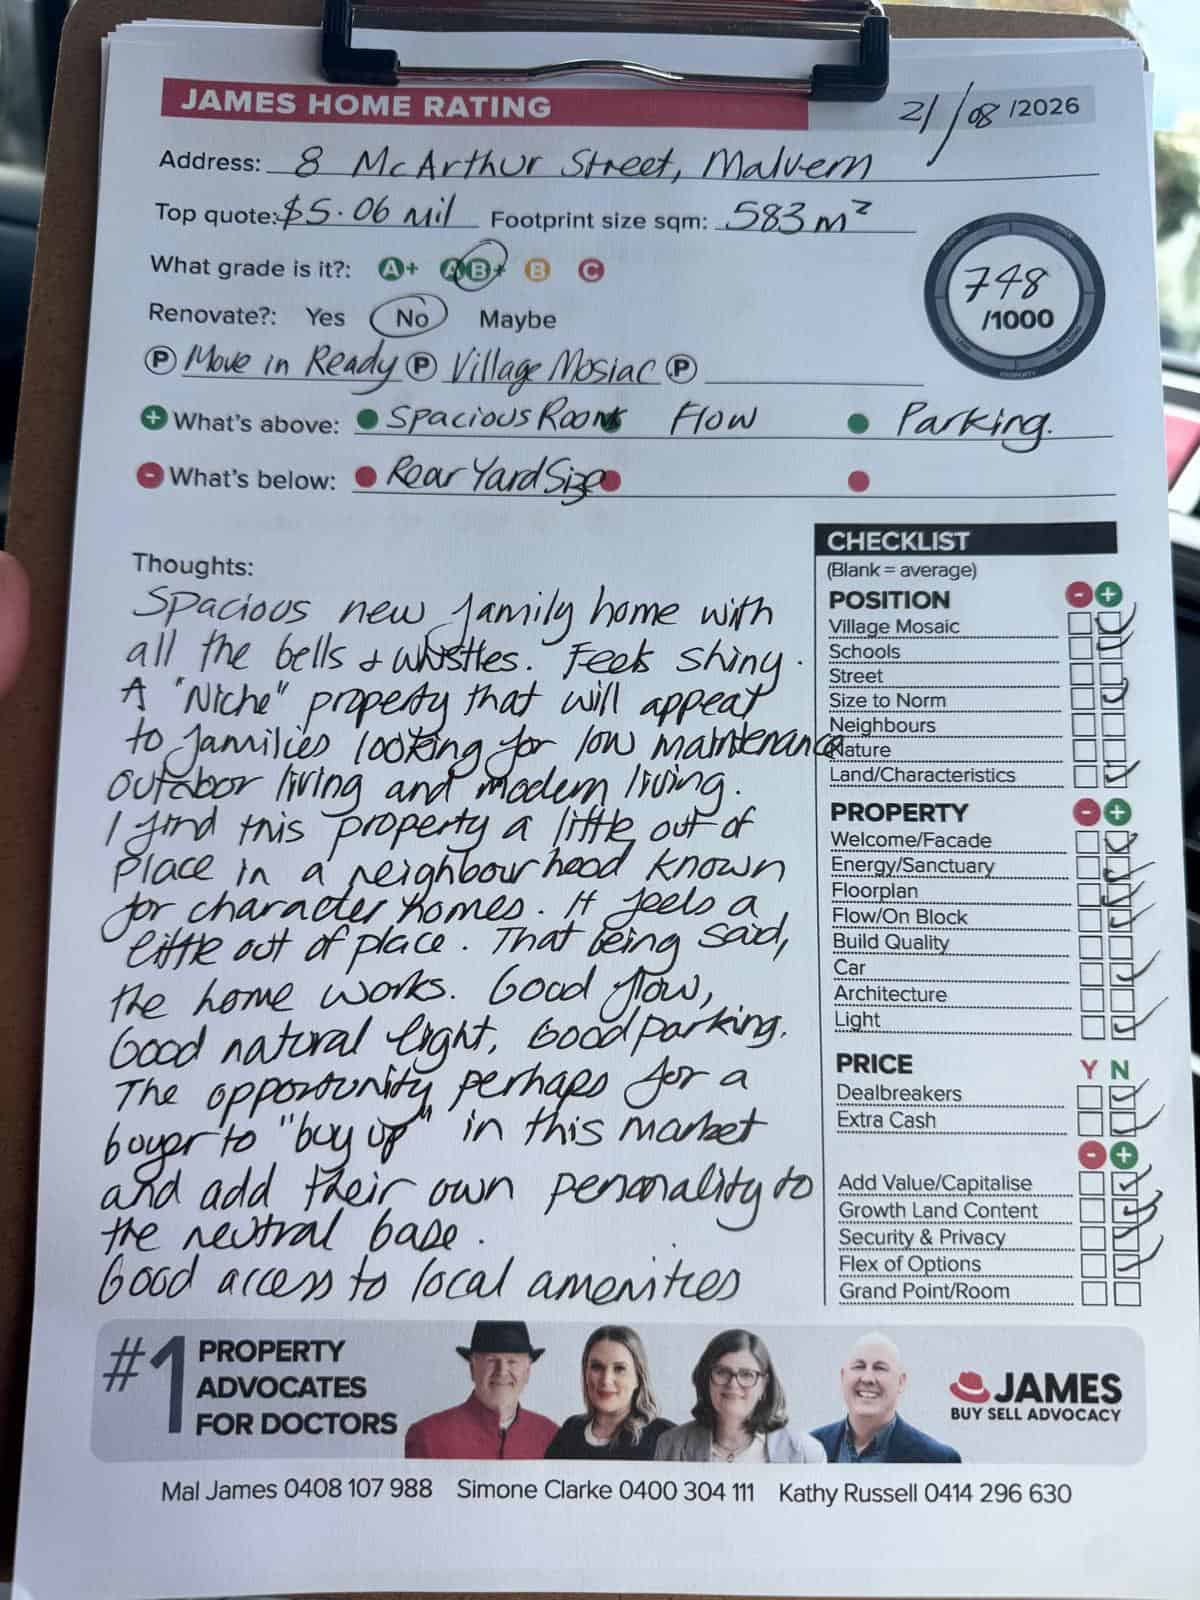 JAMES HOME RATING
21/08/2026
Address: 8 McArthur Street, Malvern
Top quote: $5.06 mil Footprint size sqm: 583m²
What grade is it?: A+ A B+ B C
748
/1000
Renovate?: Yes No Maybe
P Move in Ready P Village Mosiac P
+ What's above: Spacious Rooms Flow Parking.
- What's below: Rear Yard Size
Thoughts:
Spacious new family home with
all the bells & whistles. Feels shiny.
A "Niche" property that will appeal
to families looking for low maintenance
outdoor living and modern living.
I find this property a little out of
place in a neighbourhood known
for character homes. It feels a
little out of place. That being said,
the home works. Good flow,
Good natural light, Good parking.
The opportunity perhaps for a
buyer to "buy up" in this market
and add their own personality to
the neutral base.
Good access to local amenities
CHECKLIST
(Blank = average)
POSITION - +
Village Mosaic
Schools
Street
Size to Norm
Neighbours
Nature
Land/Characteristics
PROPERTY - +
Welcome/Facade
Energy/Sanctuary
Floorplan
Flow/On Block
Build Quality
Car
Architecture
Light
PRICE Y N
Dealbreakers
Extra Cash
- +
Add Value/Capitalise
Growth Land Content
Security & Privacy
Flex of Options
Grand Point/Room
#1 PROPERTY
ADVOCATES
FOR DOCTORS
JAMES
BUY SELL ADVOCACY
Mal James 0408 107 988 Simone Clarke 0400 304 111 Kathy Russell 0414 296 630